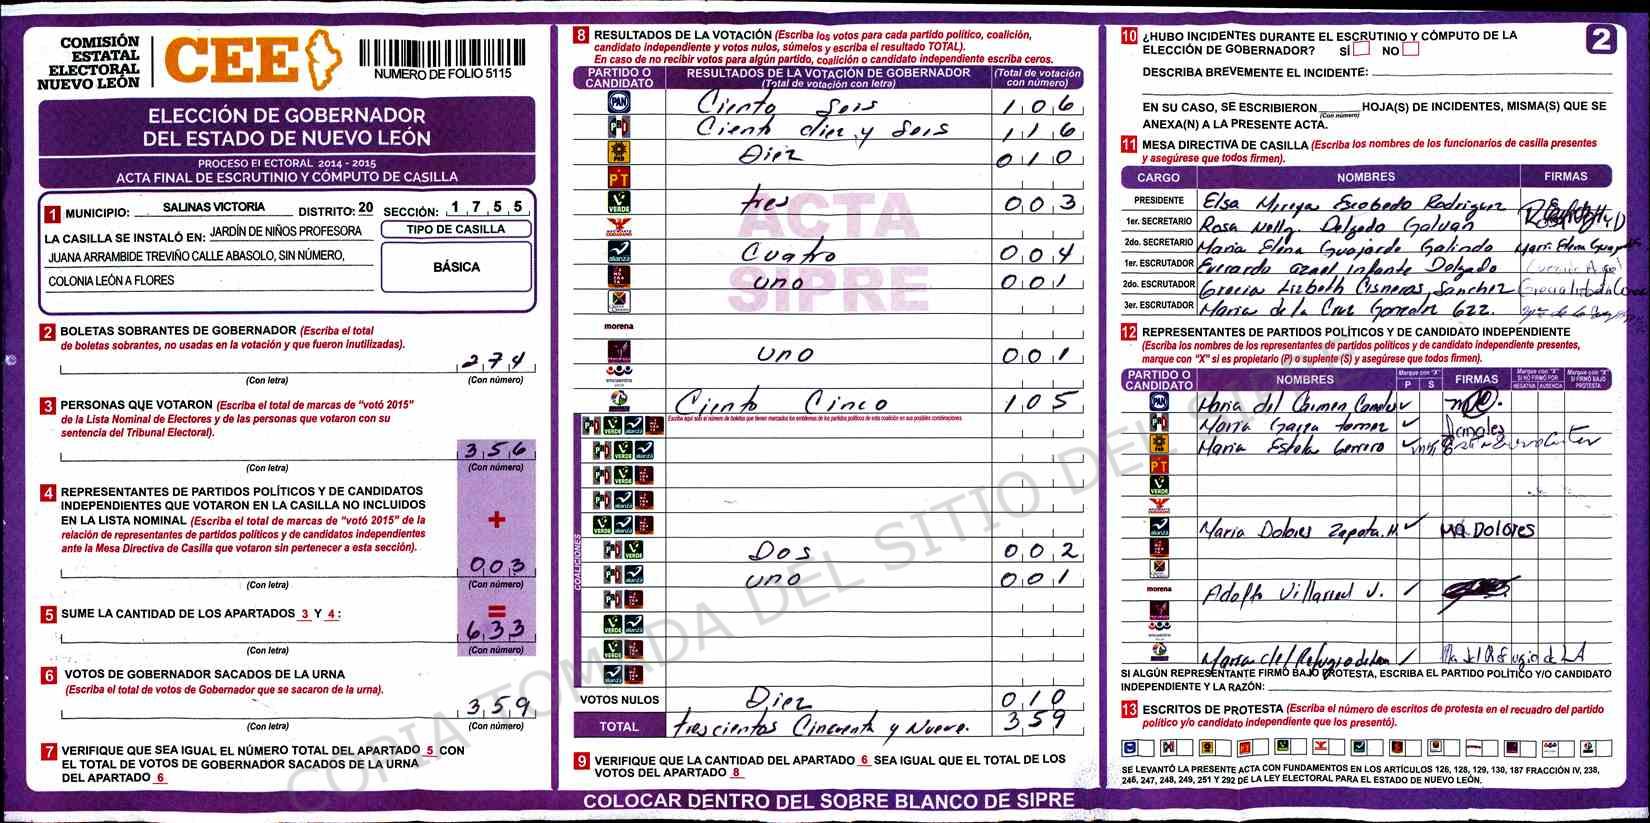 COMISIÓN
ESTATAL
ELECTORAL
NUEVO LEÓN
CEE
NUMERO DE FOLIO 5115
ELECCIÓN DE GOBERNADOR
DEL ESTADO DE NUEVO LEÓN
PROCESO ELECTORAL 2014 - 2015
ACTA FINAL DE ESCRUTINIO Y CÓMPUTO DE CASILLA
1 MUNICIPIO: SALINAS VICTORIA DISTRITO: 20 SECCIÓN: 1755
LA CASILLA SE INSTALÓ EN: JARDÍN DE NIÑOS PROFESORA
JUANA ARRAMBIDE TREVIÑO CALLE ABASOLO, SIN NÚMERO,
COLONIA LEÓN A FLORES
TIPO DE CASILLA
BÁSICA
2 BOLETAS SOBRANTES DE GOBERNADOR (Escriba el total
de boletas sobrantes, no usadas en la votación y que fueron inutilizadas).
274
(Con letra) (Con número)
3 PERSONAS QUE VOTARON (Escriba el total de marcas de "votó 2015"
de la Lista Nominal de Electores y de las personas que votaron con su
sentencia del Tribunal Electoral).
356
(Con letra) (Con número)
4 REPRESENTANTES DE PARTIDOS POLÍTICOS Y DE CANDIDATOS
INDEPENDIENTES QUE VOTARON EN LA CASILLA NO INCLUIDOS
EN LA LISTA NOMINAL (Escriba el total de marcas de "votó 2015" de la
relación de representantes de partidos políticos y de candidatos independientes
ante la Mesa Directiva de Casilla que votaron sin pertenecer a esta sección).
+
003
(Con letra) (Con número)
5 SUME LA CANTIDAD DE LOS APARTADOS 3 Y 4:
=
633
(Con letra) (Con número)
6 VOTOS DE GOBERNADOR SACADOS DE LA URNA
(Escriba el total de votos de Gobernador que se sacaron de la urna).
359
(Con letra) (Con número)
7 VERIFIQUE QUE SEA IGUAL EL NÚMERO TOTAL DEL APARTADO 5 CON
EL TOTAL DE VOTOS DE GOBERNADOR SACADOS DE LA URNA
DEL APARTADO 6
8 RESULTADOS DE LA VOTACIÓN (Escriba los votos para cada partido político, coalición,
candidato independiente y votos nulos, súmelos y escriba el resultado TOTAL).
En caso de no recibir votos para algún partido, coalición o candidato independiente escriba ceros.
PARTIDO O CANDIDATO RESULTADOS DE LA VOTACIÓN DE GOBERNADOR (Total de votación con letra) (Total de votación con número)
PAN Ciento Seis 106
PRI Ciento diez y Seis 116
PRD Diez 010
PT
VERDE tres 003
alianza Cuatro 004
uno 001
morena
uno 001
encuentro
Ciento Cinco 105
Escriba aquí solo el número de boletas que tienen marcados los emblemas de los partidos políticos de esta coalición en sus posibles combinaciones.
COALICIONES
PRI VERDE Dos 002
PRI alianza uno 001
VOTOS NULOS Diez 010
TOTAL trescientos Cincuenta y Nueve. 359
ACTA
SIPRE
9 VERIFIQUE QUE LA CANTIDAD DEL APARTADO 6 SEA IGUAL QUE EL TOTAL DE LOS
VOTOS DEL APARTADO 8
COLOCAR DENTRO DEL SOBRE BLANCO DE SIPRE
10 ¿HUBO INCIDENTES DURANTE EL ESCRUTINIO Y CÓMPUTO DE LA
ELECCIÓN DE GOBERNADOR? SÍ NO
2
DESCRIBA BREVEMENTE EL INCIDENTE:
EN SU CASO, SE ESCRIBIERON HOJA(S) DE INCIDENTES, MISMA(S) QUE SE
(Con número)
ANEXA(N) A LA PRESENTE ACTA.
11 MESA DIRECTIVA DE CASILLA (Escriba los nombres de los funcionarios de casilla presentes
y asegúrese que todos firmen).
CARGO NOMBRES FIRMAS
PRESIDENTE Elsa Mireya Escobedo Rodriguez
1er. SECRETARIO Rosa Nelly Delgado Galvan
2do. SECRETARIO Maria Elena Guajardo Galindo
1er. ESCRUTADOR Everardo Infante Delgado
2do. ESCRUTADOR Grecia Lizbeth Cisneros Sanchez
3er. ESCRUTADOR Maria de la Cruz
12 REPRESENTANTES DE PARTIDOS POLÍTICOS Y DE CANDIDATO INDEPENDIENTE
(Escriba los nombres de los representantes de partidos políticos y de candidato independiente presentes,
marque con "X" si es propietario (P) o suplente (S) y asegúrese que todos firmen).
PARTIDO O CANDIDATO NOMBRES Marque con "X" P S FIRMAS Marque con "X" SI NO FIRMÓ POR NEGATIVA AUSENCIA Marque con "X" SI FIRMÓ BAJO PROTESTA
PAN Maria del Carmen
PRI Maria Garza
PRD Maria Estela
PT
VERDE
alianza Maria Dolores Zapata. M. Ma Dolores
morena Adolfo Villarreal V.
Maria del Refugio de
SI ALGÚN REPRESENTANTE FIRMÓ BAJO PROTESTA, ESCRIBA EL PARTIDO POLÍTICO Y/O CANDIDATO
INDEPENDIENTE Y LA RAZÓN:
13 ESCRITOS DE PROTESTA (Escriba el número de escritos de protesta en el recuadro del partido
político y/o candidato independiente que los presentó).
SE LEVANTÓ LA PRESENTE ACTA CON FUNDAMENTOS EN LOS ARTÍCULOS 126, 128, 129, 130, 187 FRACCIÓN IV, 238,
246, 247, 248, 249, 251 Y 292 DE LA LEY ELECTORAL PARA EL ESTADO DE NUEVO LEÓN.
COPIA TOMADA DEL SITIO DEL